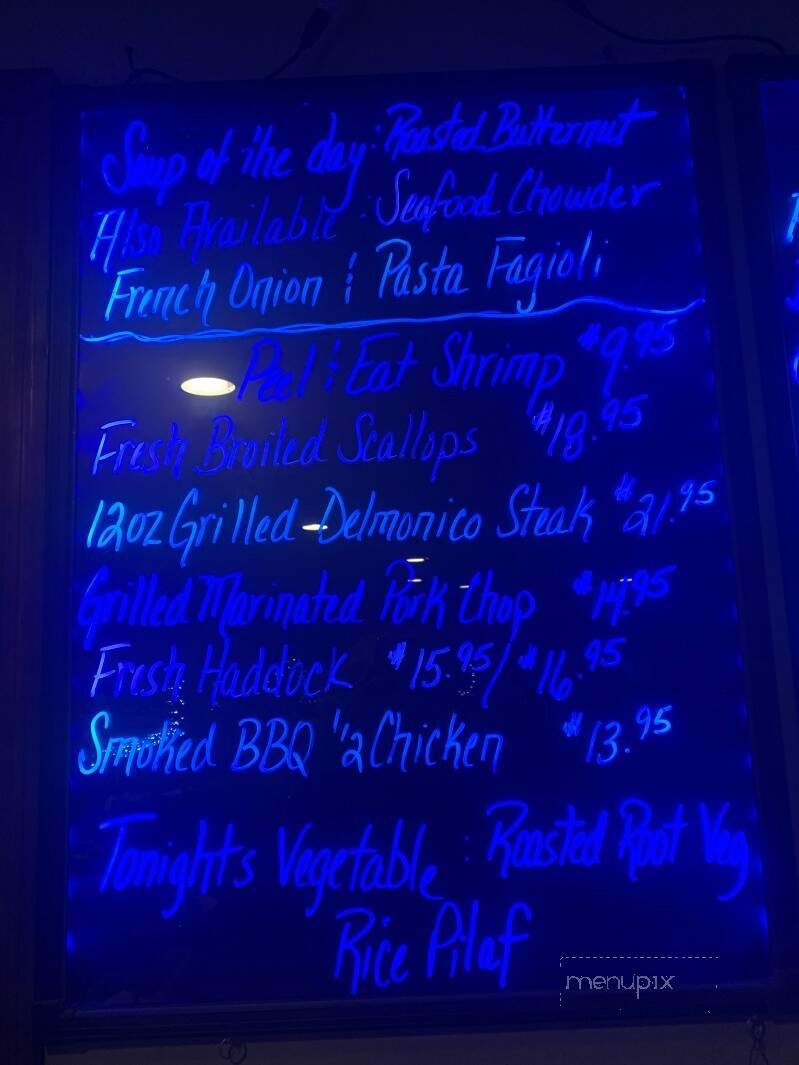 Soup of the day: Roasted Butternut
Also Available: Seafood Chowder
French Onion & Pasta Fagioli
Peel & Eat Shrimp $9.95
Fresh Broiled Scallops $18.95
12oz Grilled Delmonico Steak $21.95
Grilled Marinated Pork Chop $14.95
Fresh Haddock $15.95/$16.95
Smoked BBQ 1/2 Chicken $13.95
Tonights Vegetable: Roasted Root Veg
Rice Pilaf
menupix